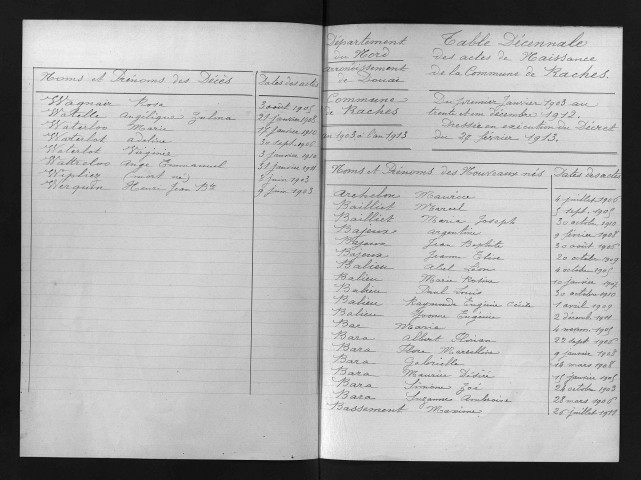 Noms et Prénoms des Décès Dates des actes
Wagnair Rosa 3 août 1905
Watelle Angélique Zulma 21 janvier 1908
Waterloo Marie 17 janvier 1910
Waterlot Adeline 30 sept. 1906
Waterlot Virginie 3 janvier 1910
Watterloo Ange Emmanuel 31 janvier 1911
Wiplier (mort né) 8 juin 1903
Werquin Henri Jean Bte 9 juin 1903
Département
du Nord
arrondissement
de Douai
Commune
de Raches
au 1903 à l'an 1913
Table Décennale
des actes de Naissance
de la Commune de Raches.
Du premier Janvier 1903 au
trente et un décembre 1912.
Dressée en exécution du Décret
du 28 février 1913.
Noms et Prénoms des Nouveaux nés Dates des actes
Archelon Maurice 4 juillet 1906
Bailliet Marcel 5 sept. 1905
Bailliet Marie Joseph 30 octobre 1910
Bajeux Argentine 9 février 1908
Bajeux Jean Baptiste 30 août 1906
Bajeux Jeanne Elise 20 octobre 1909
Balieu Abel Léon 4 octobre 1905
Balieu Marie Rosine 10 janvier
Balieu Paul Louis 30 octobre 1910
Balieu Raymonde Eugénie Cécile 1 avril 1909
Balieu Yvonne Eugénie 2 décemb. 1911
Bar Marie 4 novem. 1905
Bara Albert Florian 22 sept. 1906
Bara Flore Marcelline 9 janvier 1908
Bara Gabrielle 16 mars 1908
Bara Maurice Désiré 15 janvier 1905
Bara Simone Zoé 24 octobre 1903
Bara Suzanne Ambroise 28 mars 1906
Bassement Maxime 26 juillet 1911